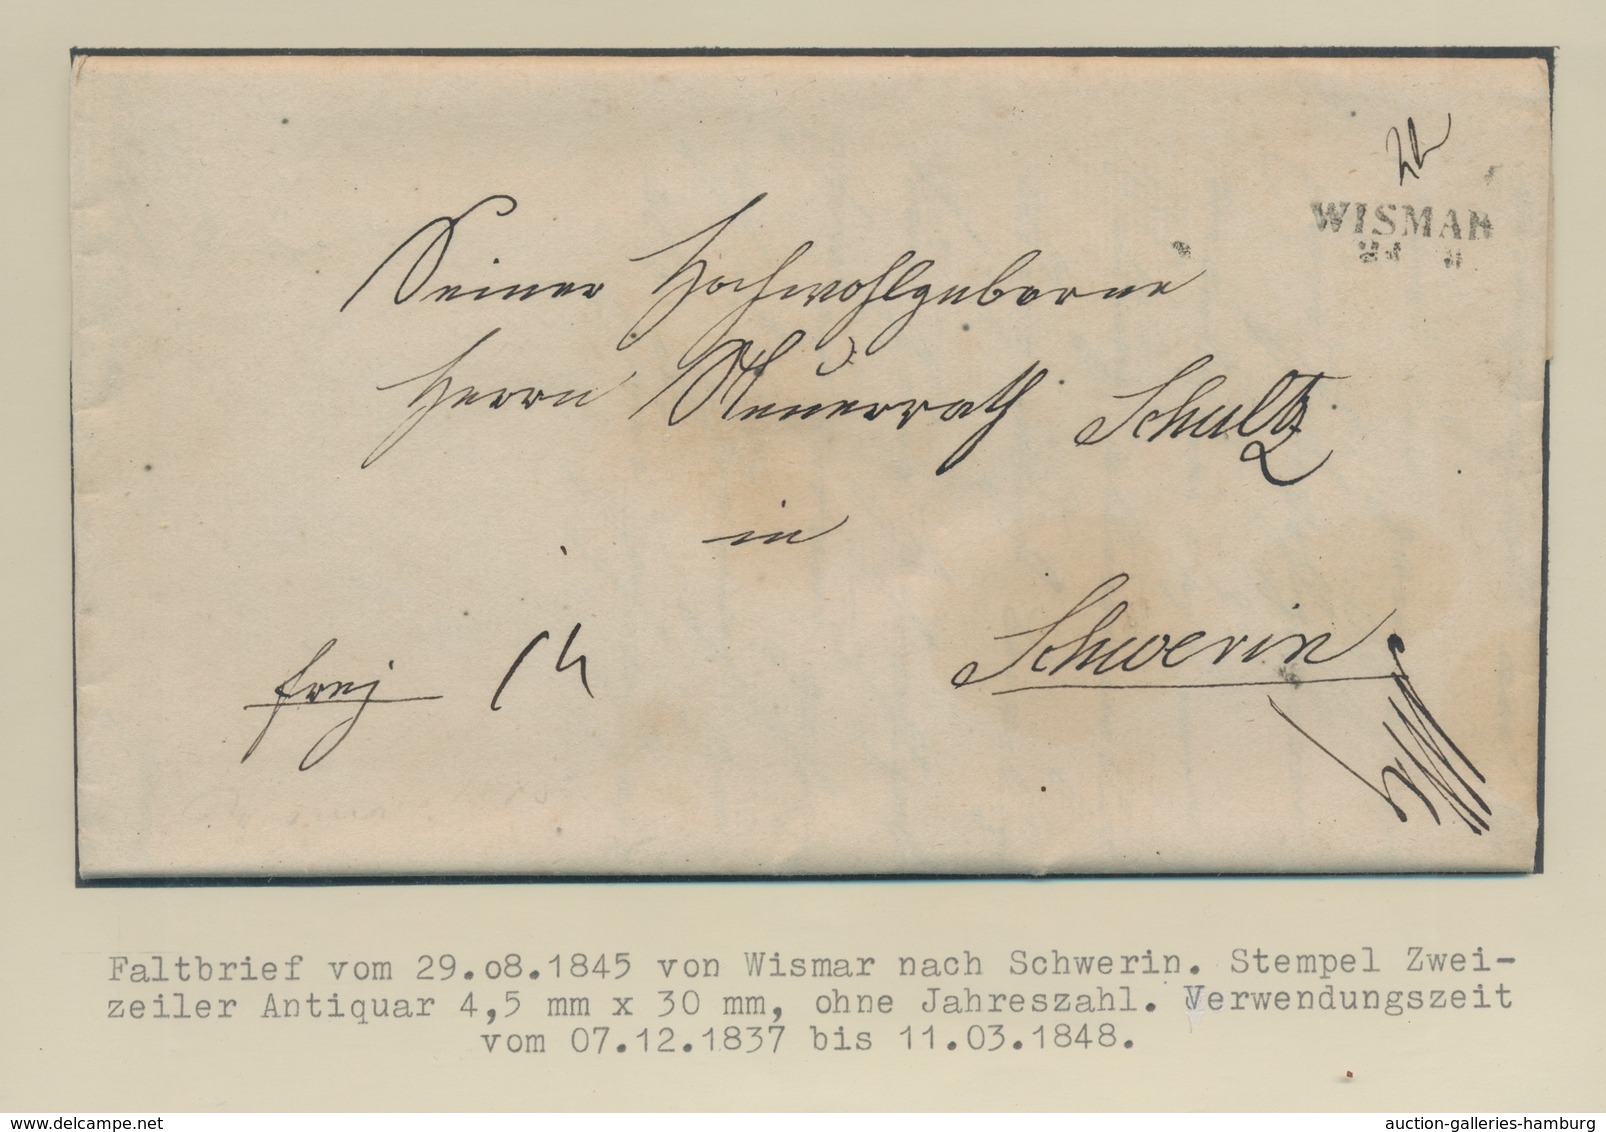 WISMAR
Seiner Hochwohlgeboren
Herrn Steuerrath Schultz
in
Schwerin
frei
Faltbrief vom 29.o8.1845 von Wismar nach Schwerin. Stempel Zwei-
zeiler Antiquar 4,5 mm x 30 mm, ohne Jahreszahl. Verwendungszeit
vom 07.12.1837 bis 11.03.1848.
www.delcampe.net
auction-galleries-hamburg